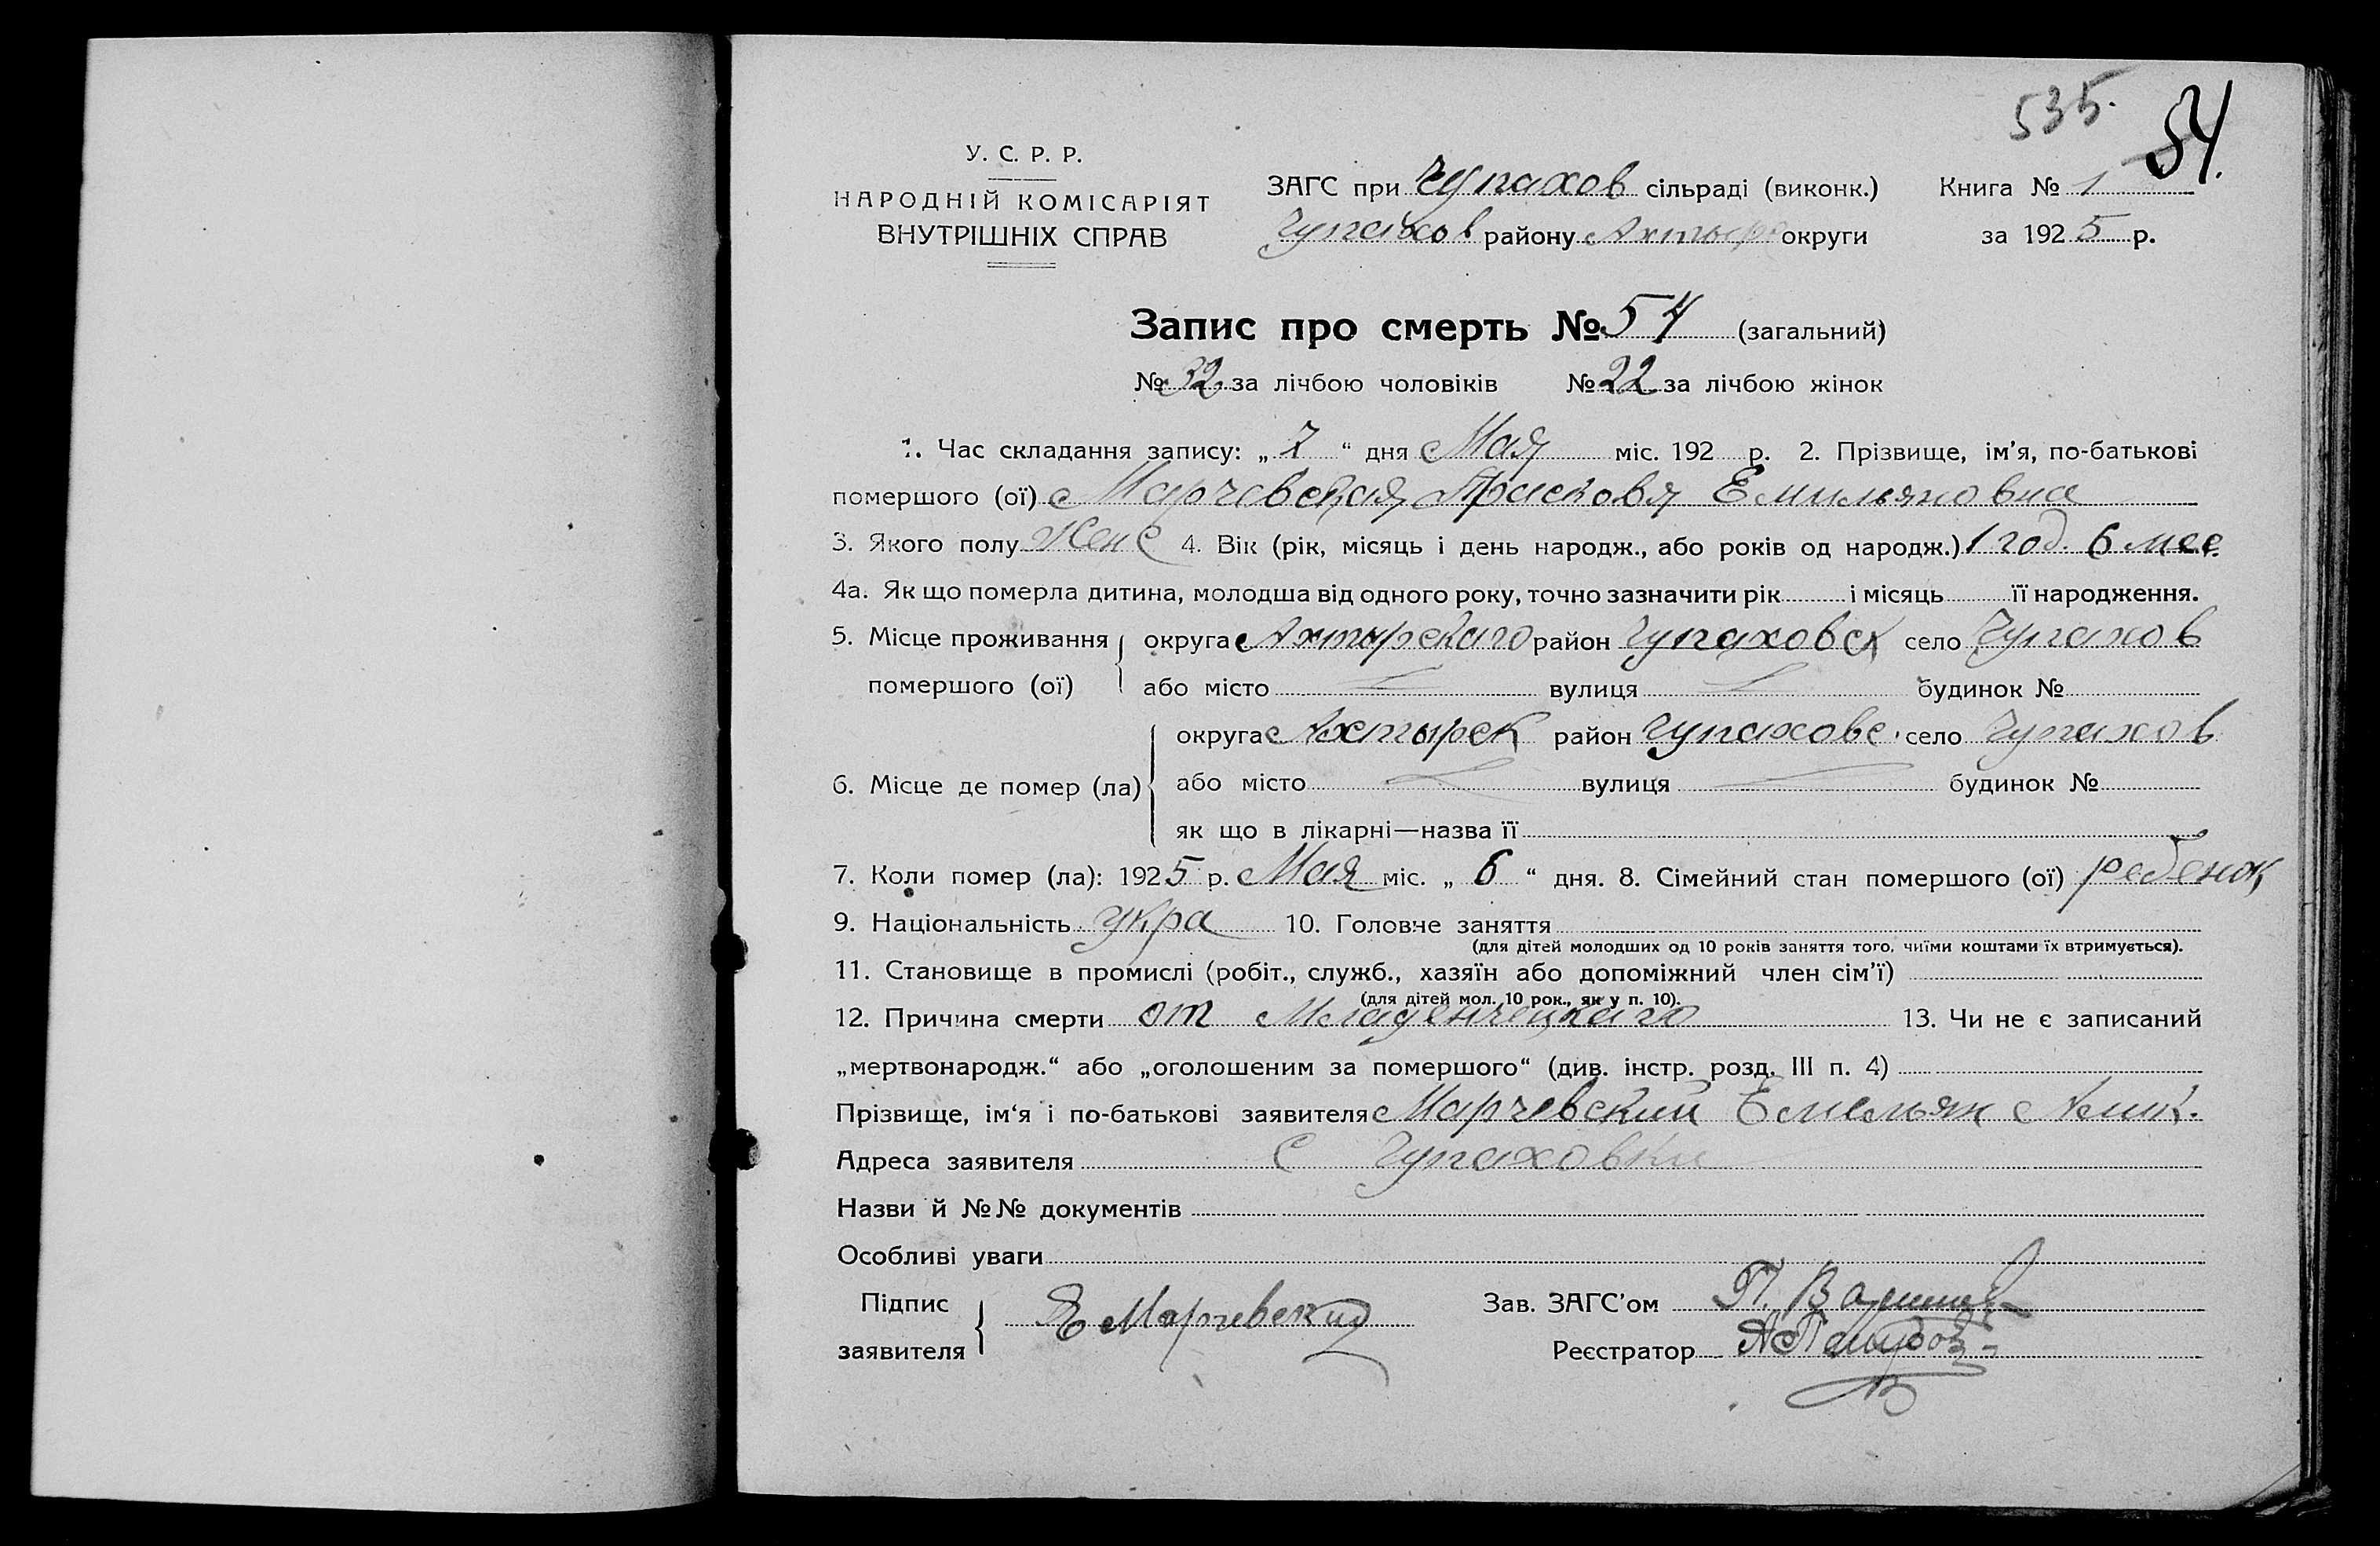 535.
54.
У. С. Р. Р.
НАРОДНІЙ КОМІСАРІЯТ
ВНУТРІШНІХ СПРАВ
ЗАГС при Чупахов сільраді (виконк.)
Чупахов району Ахтыр округи
Книга № 1
за 1925 р.
Запис про смерть № 54 (загальний)
№ 32 за лічбою чоловіків № 22 за лічбою жінок
1. Час складання запису: „ 7 “ дня Мая міс. 192 р. 2. Прізвище, ім’я, по-батькові
помершого (ої) Марчевская Прасковя Емильяновна
3. Якого полу Женс 4. Вік (рік, місяць і день народж., або років од народж.) 1 год. 6 мес.
4а. Як що померла дитина, молодша від одного року, точно зазначити рік і місяць її народження.
5. Місце проживання округа Ахтырскаго район Чупаховск село Чупахов
помершого (ої) або місто вулиця будинок №
округа Ахтырск район Чупаховс. село Чупахов
6. Місце де помер (ла) або місто вулиця будинок №
як що в лікарні—назва її
7. Коли помер (ла): 1925 р. Мая міс. „ 6 “ дня. 8. Сімейний стан помершого (ої) ребенок
9. Національність укра 10. Головне заняття
(для дітей молодших од 10 років заняття того, чиїми коштами їх втримується).
11. Становище в промислі (робіт., служб., хазяїн або допоміжний член сім’ї)
(для дітей мол. 10 рок., як у п. 10).
12. Причина смерти от Младенчецкаго 13. Чи не є записаний
„мертвонародж.“ або „оголошеним за помершого“ (див. інстр. розд. III п. 4)
Прізвище, ім‘я і по-батькові заявителя Марчевский Емельян
Адреса заявителя С Чупаховки
Назви й №№ документів
Особливі уваги
Підпис
заявителя
Е Марчевский
Зав. ЗАГС’ом П.
Реєстратор